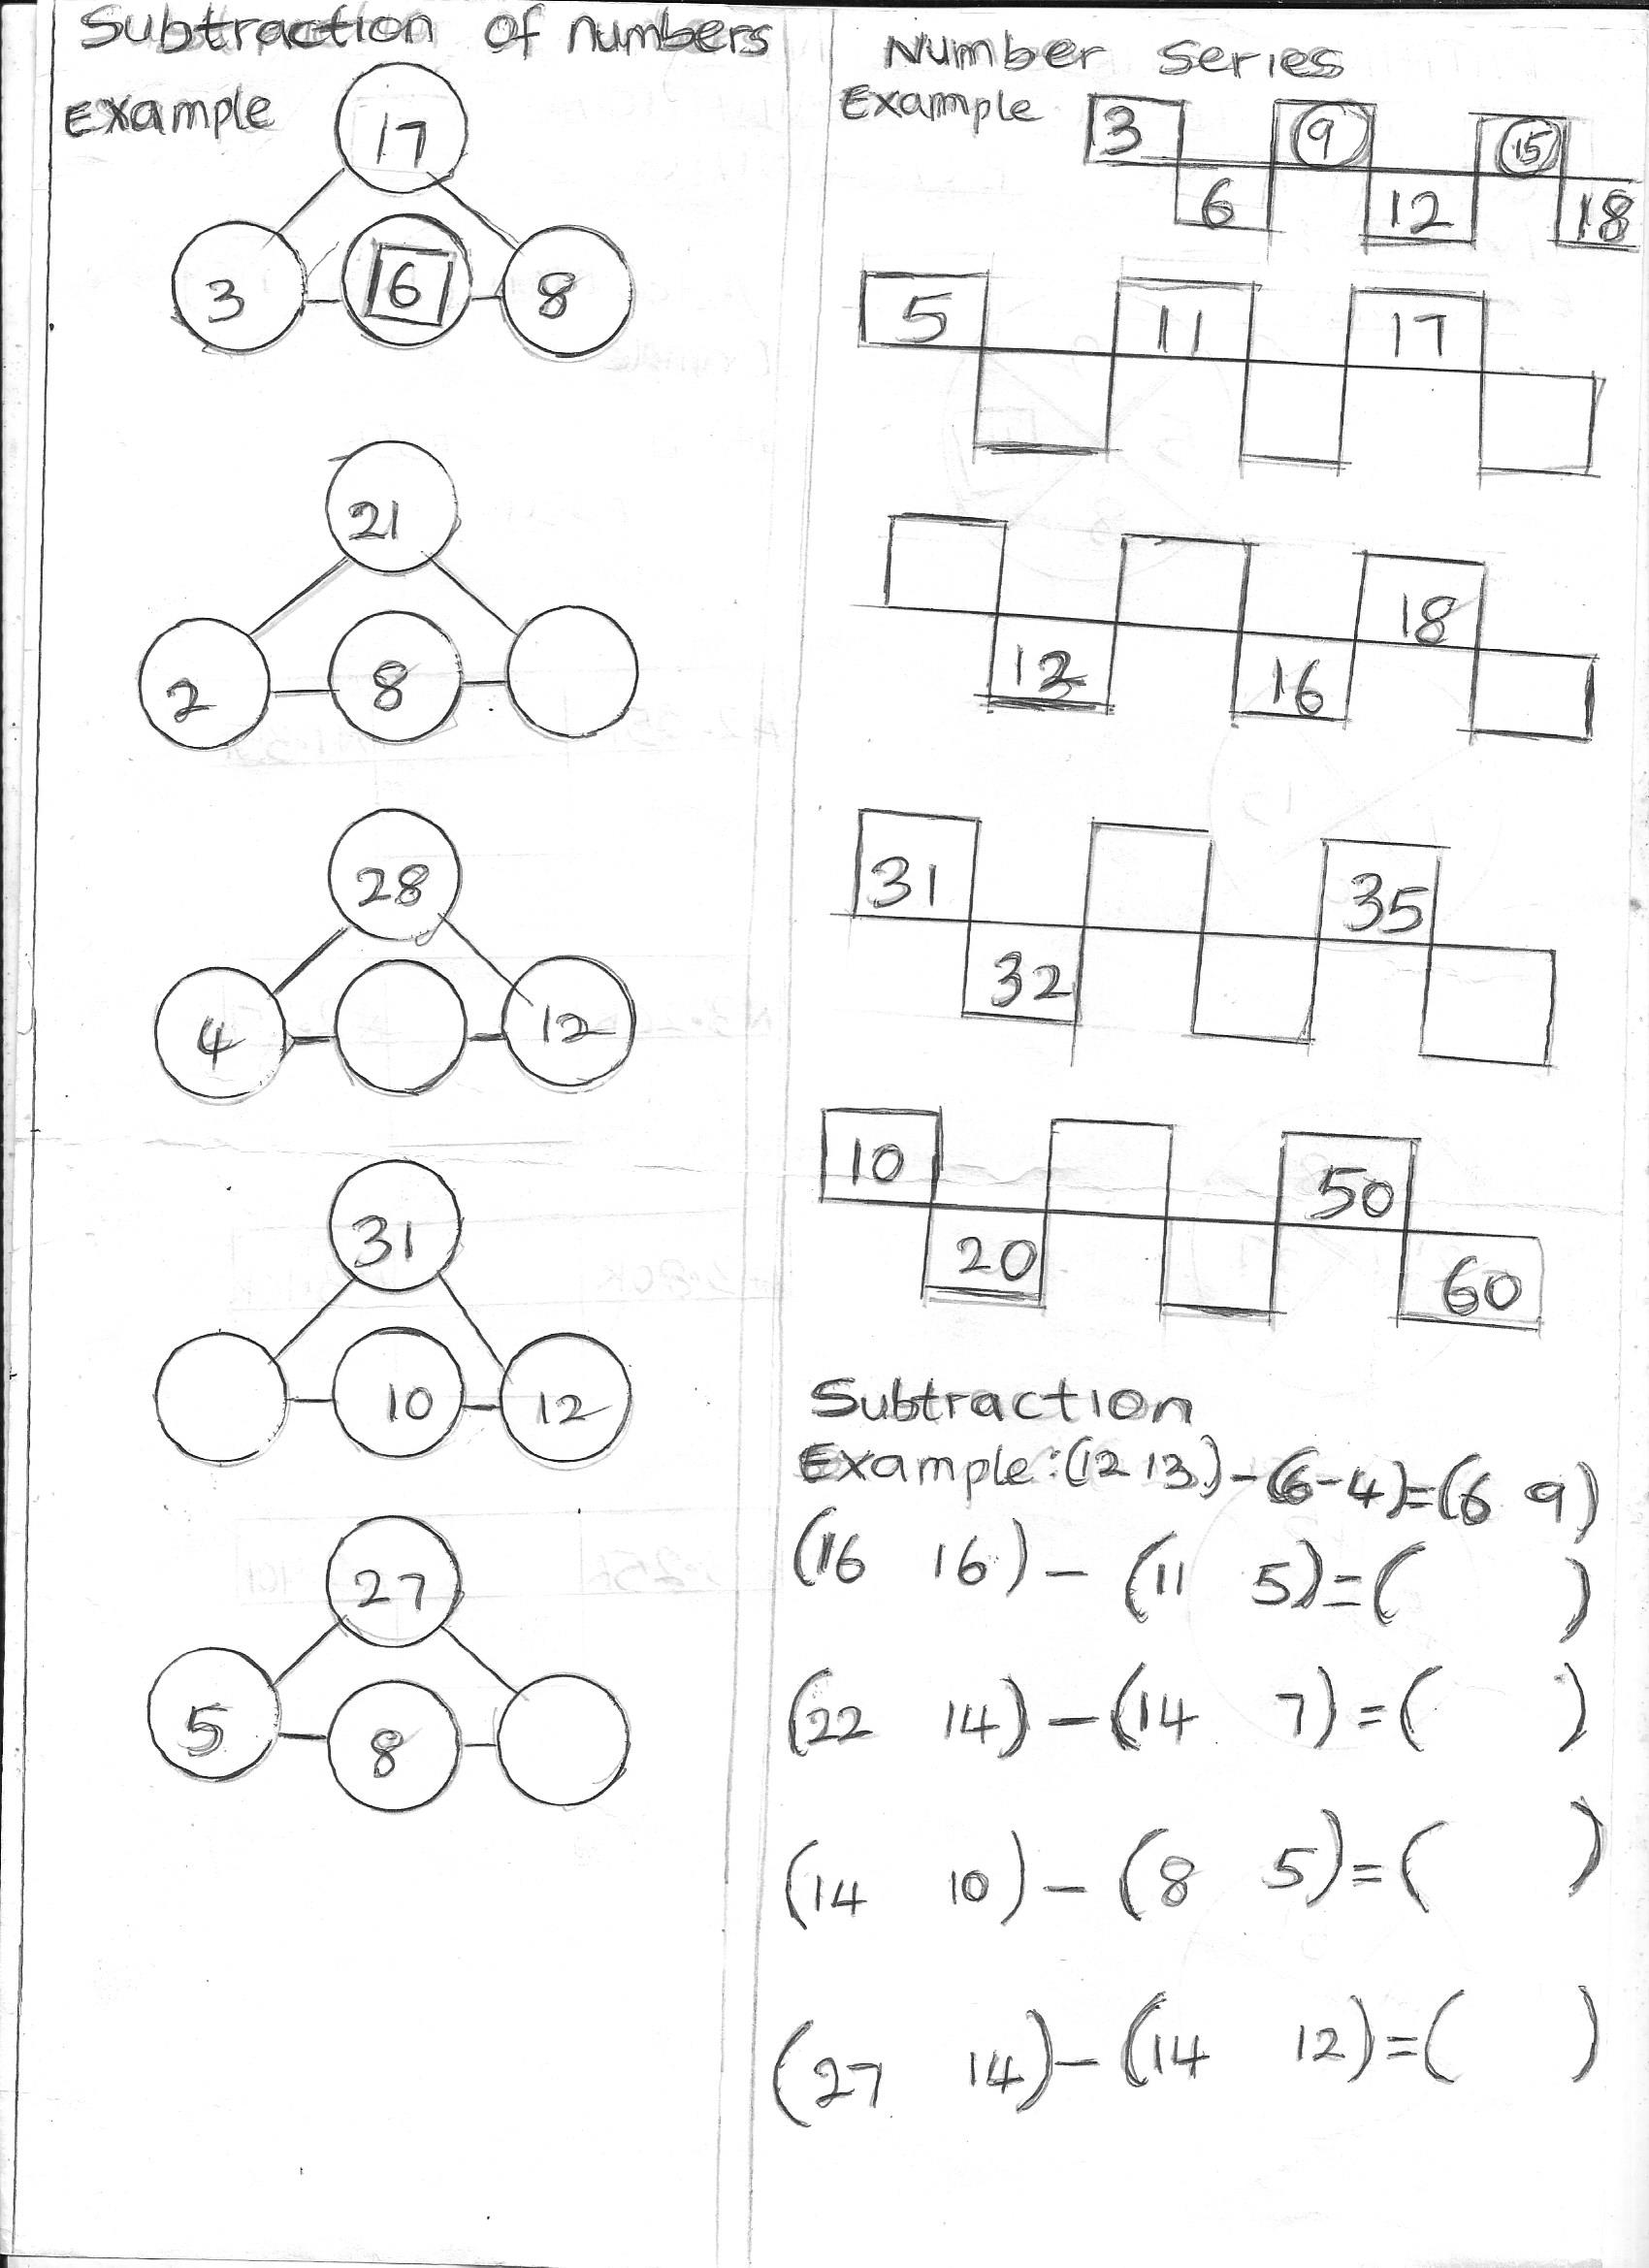 Subtraction of numbers
Example
17
3 6 8
21
2 8
28
4 12
31
10 12
27
5 8
Number series
Example
3 9 15
6 12 18
5 11 17
18
12 16
31 35
32
10 50
20 60
Subtraction
Example: (12 13) - (6-4) = (6 9)
(16 16) - (11 5) = ( )
(22 14) - (14 7) = ( )
(14 10) - (8 5) = ( )
(27 14) - (14 12) = ( )